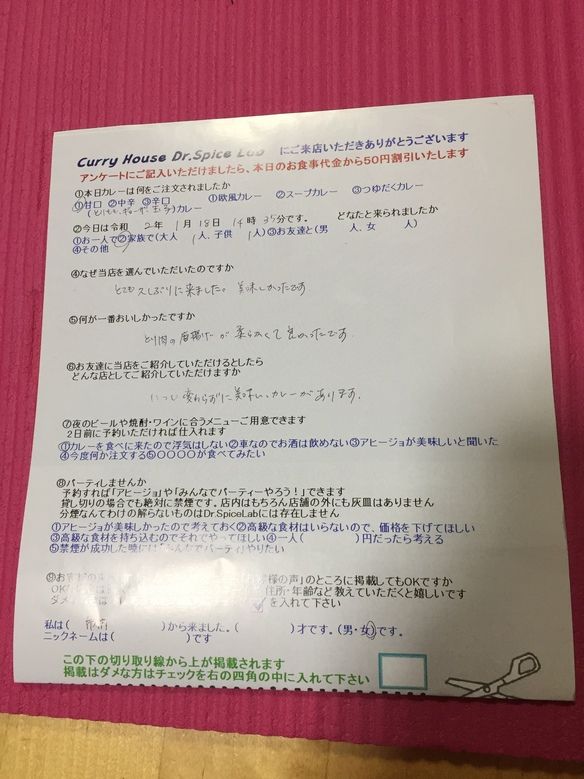 Curry House Dr.Spice Lab にご来店いただきありがとうございます
アンケートにご記入いただけましたら、本日のお食事代金から50円割引いたします
①本日カレーは何をご注文されましたか
①甘口 ②中辛 ③辛口 ①欧風カレー ②スープカレー ③つゆだくカレー
カレー
②今日は令和 2年 1月 18日 14時 35分です。 どなたと来られましたか
①お一人で②家族で(大人 1人、子供 1人)③お友達と(男 人、女 人)
④その他
④なぜ当店を選んでいただいたのですか
とても久しぶりに来ました。美味しかったです
⑤何が一番おいしかったですか
とり肉の唐揚げが柔らかくて良かったです。
⑥お友達に当店をご紹介していただけるとしたら
どんな店としてご紹介していただけますか
いつも変わらずに美味しいカレーがあります。
⑦夜のビールや焼酎・ワインに合うメニューご用意できます
2日前に予約いただければ仕入れます
①カレーを食べに来たので浮気はしない②車なのでお酒は飲めない③アヒージョが美味しいと聞いた
④今度何か注文する⑤〇〇〇〇が食べてみたい
⑧パーティしませんか
予約すれば「アヒージョ」や「みんなでパーティーやろう!」できます
貸し切りの場合でも絶対に禁煙です。店内はもちろん店舗の外にも灰皿はありません
分煙なんてわけの解らないものはDr.SpiceLabには存在しません
①アヒージョが美味しかったので考えておく②高級な食材はいらないので、価格を下げてほしい
③高級な食材を持ち込むのでそれでやってほしい④一人( )円だったら考える
⑤禁煙が成功した暁には「みんなでパーティ」やりたい
⑨お客様の声 様の声」のところに掲載してもOKですか
OK 住所・年齢など教えていただくと嬉しいです
ダメ を入れて下さい
私は( )から来ました。( )才です。(男・女)です。
ニックネームは( )です
この下の切り取り線から上が掲載されます
掲載はダメな方はチェックを右の四角の中に入れて下さい